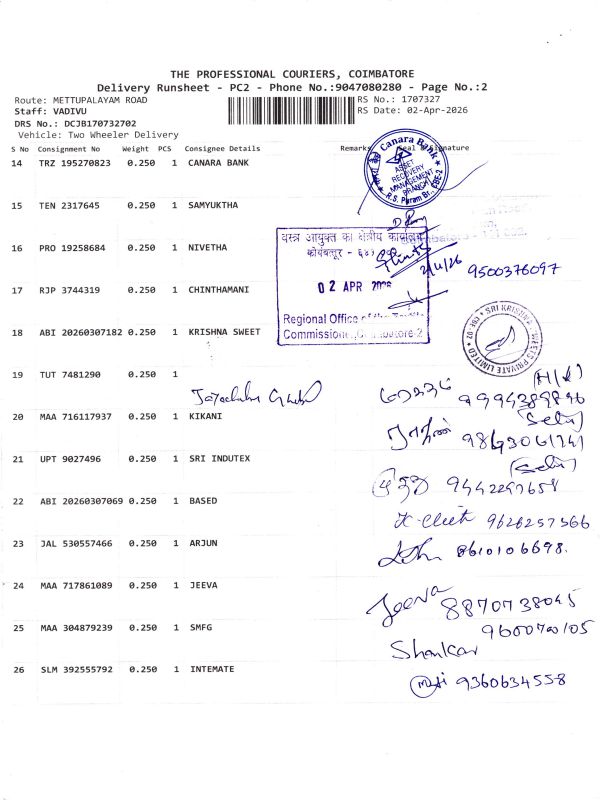 THE PROFESSIONAL COURIERS, COIMBATORE
Delivery Runsheet - PC2 - Phone No.:9047080280 - Page No.:2
Route: METTUPALAYAM ROAD
RS No.: 1707327
Staff: VADIVU
RS Date: 02-Apr-2026
DRS No.: DCJB170732702
Vehicle: Two Wheeler Delivery
S No Consignment No Weight PCS Consignee Details Remarks Seal & Signature
14 TRZ 195270823 0.250 1 CANARA BANK
Canara Bank
ASSET RECOVERY MANAGEMENT BRANCH
R.S. Puram Br., CBE-2
15 TEN 2317645 0.250 1 SAMYUKTHA
वस्त्र आयुक्त का क्षेत्रीय कार्यालय
16 PRO 19258684 0.250 1 NIVETHA
कोयंबत्तूर -
2/4/26
9500376097
17 RJP 3744319 0.250 1 CHINTHAMANI
02 APR 2026
Regional Office of the
18 ABI 20260307182 0.250 1 KRISHNA SWEET
Commissioner, Coimbatore-2
SRI KRISHNA SWEETS PRIVATE LIMITED CBE-02
19 TUT 7481290 0.250 1
(H/W)
20 MAA 716117937 0.250 1 KIKANI
(Selvi)
21 UPT 9027496 0.250 1 SRI INDUTEX
(Selvi)
22 ABI 20260307069 0.250 1 BASED
9626257366
23 JAL 530557466 0.250 1 ARJUN
8610106698.
24 MAA 717861089 0.250 1 JEEVA
Jeeva 8870738045
25 MAA 304879239 0.250 1 SMFG
9600700105
Shankar
26 SLM 392555792 0.250 1 INTEMATE
9360634558